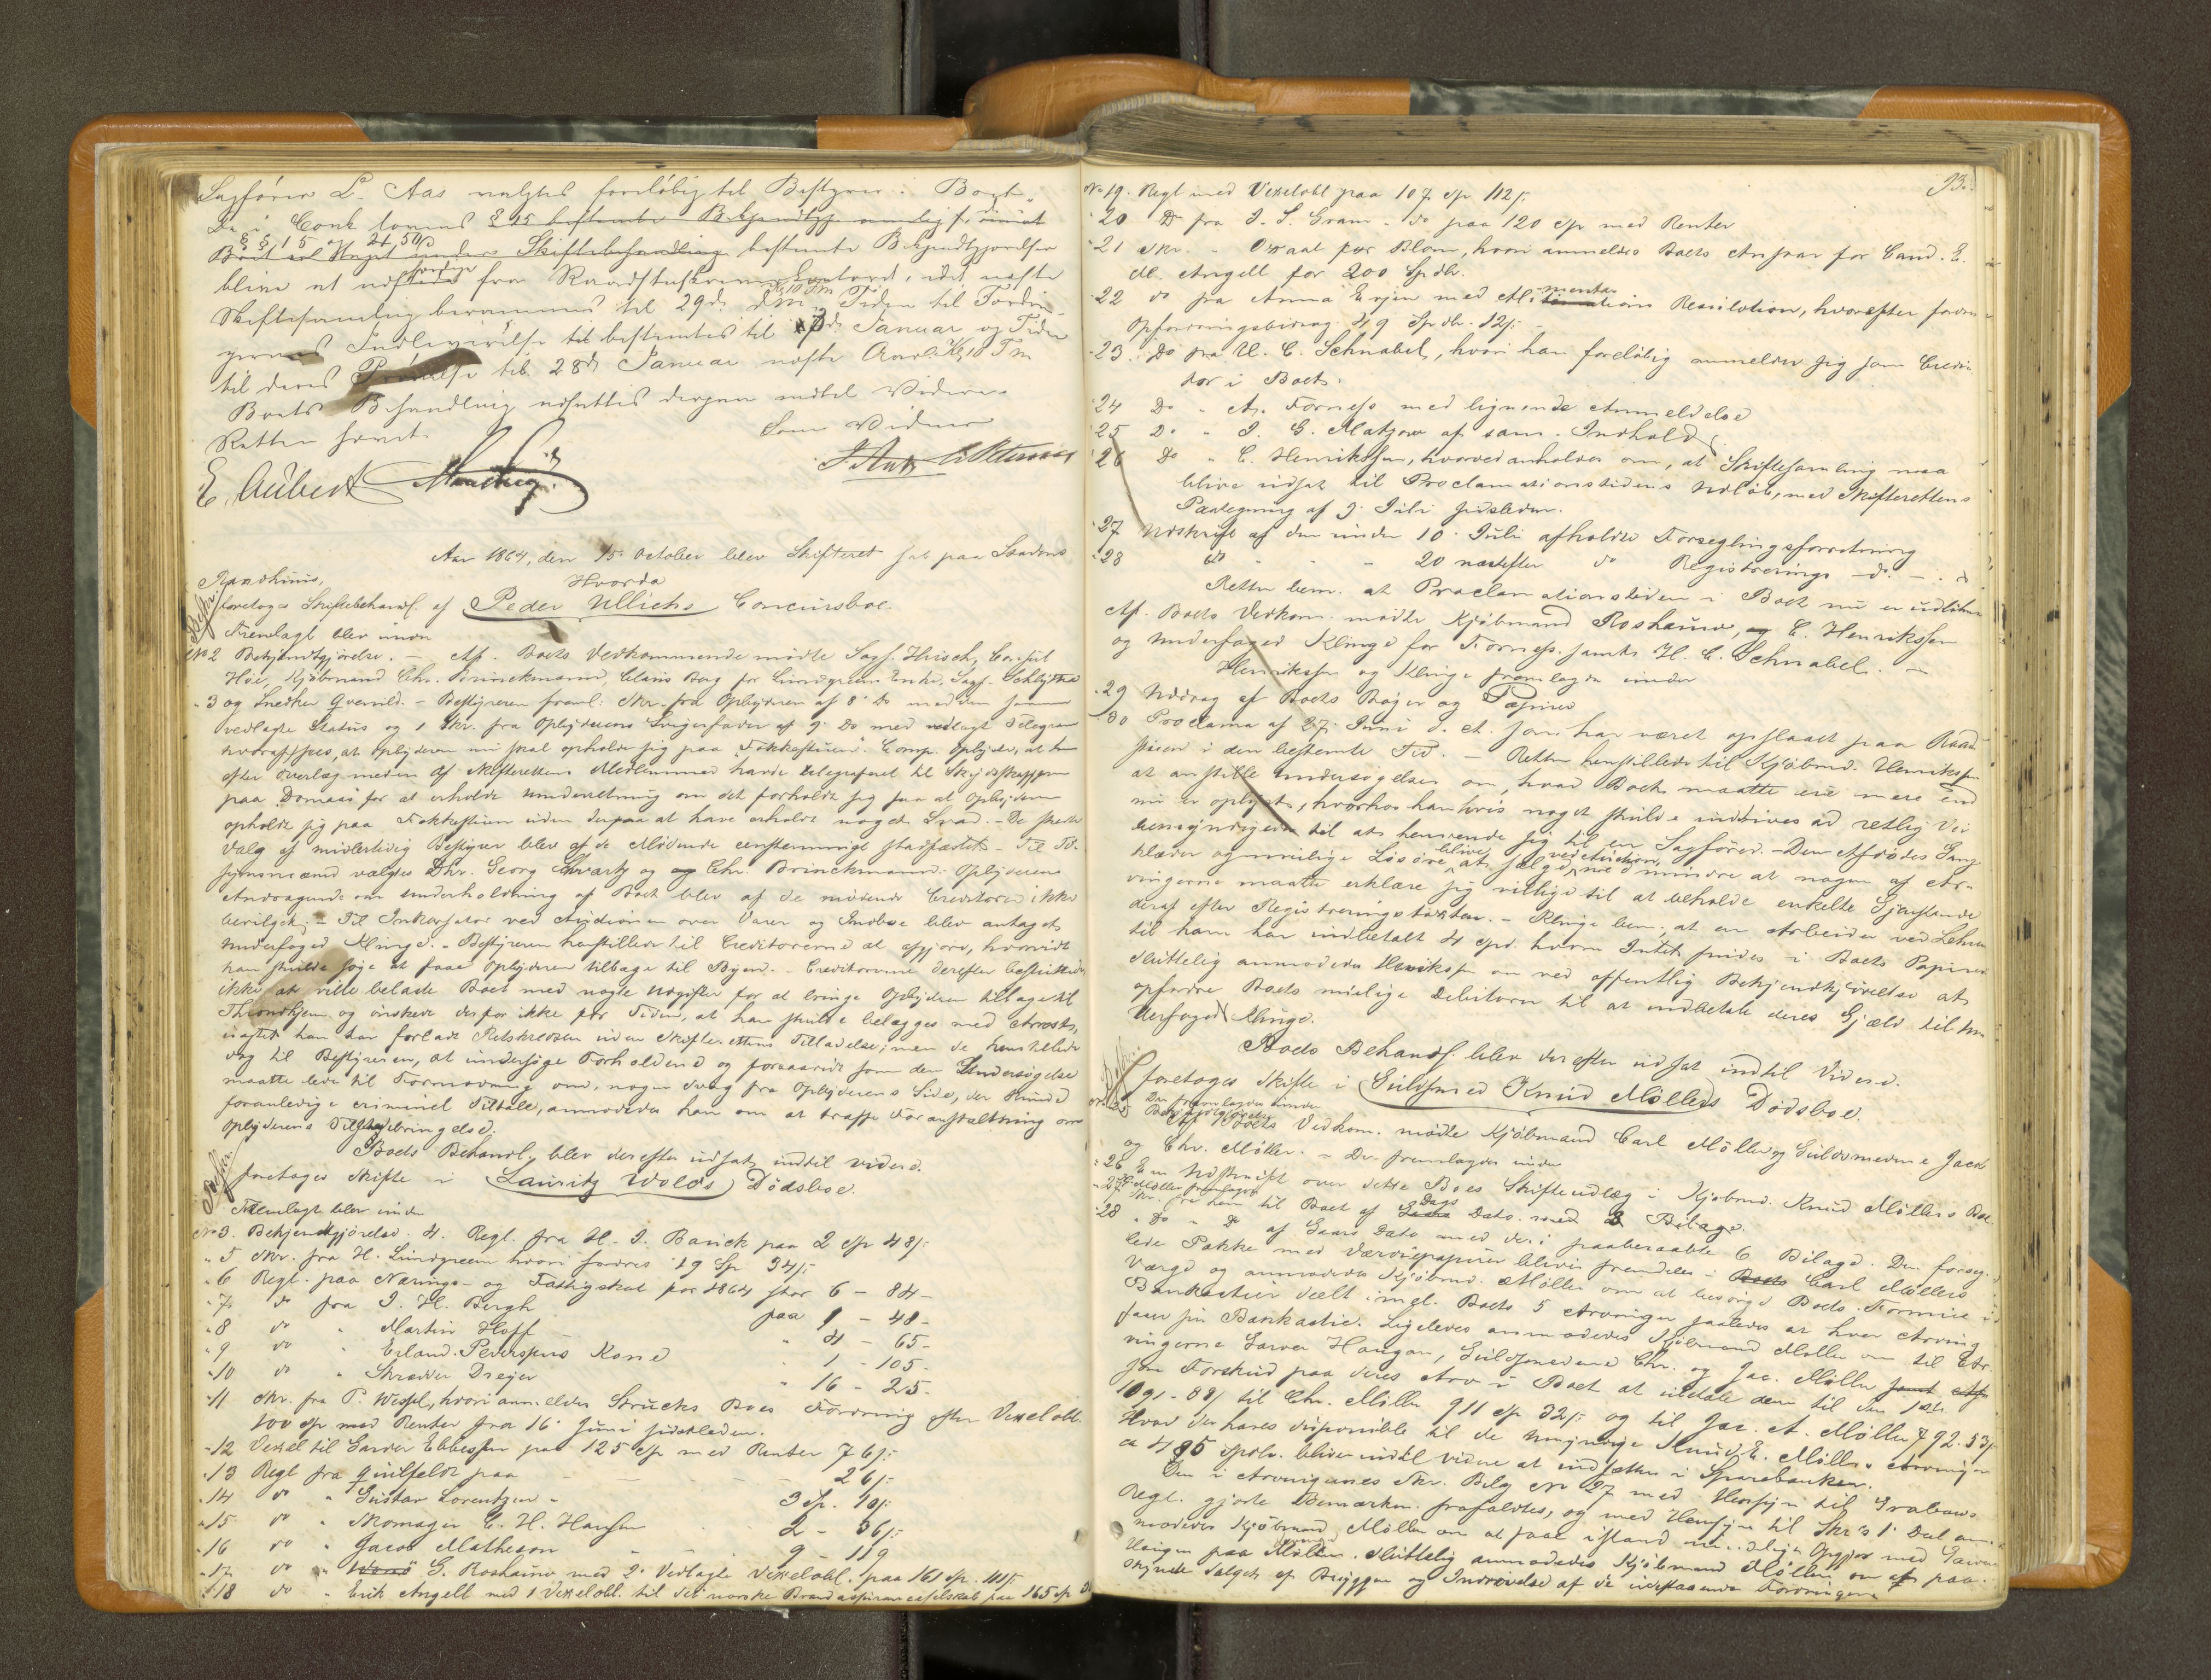 Sagfører L. Aas valgtes foreløbig til Bestyrer. Bogt„
De i Conk lovens § 25 bestemte Bekjendtgj
§ § 15 og 21, 50
Boet under Skiftebehandling bestemte Bekjendtgjørelser
blive at udfærdige fra Raadstuskriverkontoret, idet næste
Kl 10 Fm
Skiftesamling berammes til 29de dM, Tiden til Fordrin-
gernes Indlevering bestemtes til 7de Januar og Tiden
til deres Prøvelse til 28de Januar næste Aar Kl 10 Fm
Boets Behandling udsattes derpaa indtil Videre.
Retten hævet.
Som Vidner
E. Aubert
Aar 1864, den 15. October blev Skifteret sat paa Stadens
Raadhuus,
Hvorda
Beskr.
foretoges Skiftebehandl. af Peder Ullichs Concursboe.
Fremlagt blev under
No 2 Bekjendtgjørelse. – Af Boets Vedkommende mødte Sagf. Hirsch, Consul
Høe, Kjøbmand Chr. Brinckmann, Claus Berg for Lundgreens Enke, Sagf. Schlytter
" 3 og Snedker Qvernild. – Bestyreren freml: Skr. fra Opbyderen af 8 Do med den samme
vedlagte Status og 1 Skr. fra Opbyderens Svigerfader af 9 Do med vedlagt Telegram
hvoraf sees, at Opbyderen nu skal opholde sig paa "Fokkestuen". Comp. oplyste, at han
efter Overlæg med en af Skifterettens Medlemmer havde telegraferet til Skydsskafferen
paa Domaas for at erholde Underretning om det forholdt sig saa at Opbyderen
opholdt sig paa Fokkestuen uden derpaa at have erholdt noget Svar. – De skete
Valg af midlertidig Bestyrer blev af de Mødende eenstemmigt stadfæstet – Til Til-
synsmænd valgtes Dhr. Georg Schwartz og Chr. Brinckmann. Opbyderens
Andragende om Underholdning af Boet blev af de mødende Creditorer ikke
bevilget; – Til Inkassator ved Auctionen over Varer og Indboe blev antaget
Underfoged Klinge. – Bestyreren henstillede til Creditorerne at afgjøre, hvorvidt
han skulde søge at faae Opbyderen tilbage til Byen. – Creditorerne derefter besluttede
ikke at ville belaste Boet med nogle Udgifter for at bringe Opbyderen tilbage til
Throndhjem og ønskede derfor ikke for Tiden, at han skulde belægges med Arrest,
uagtet han har forladt Retskredsen uden Skifterettens Tilladelse; men de henstillede
dog til Bestyreren, at undersøge Forholdene og forsaavidt som den Undersøgelse
maatte lede til Formodning om, nogen Svig fra Opbyderens Side, der kunde
foranledige criminel Tiltale, anmodedes han om at træffe Foranstaltning om
Opbyderens Tilstedebringelse.
Boets Behandl. blev derefter udsat indtil videre.
Beskr.
foretoges Skifte i Lauritz Wolds Dødsboe.
Fremlagt blev under
No 3. Bekjendtgjørelse. 4. Regl. fra H. J. Banck paa 2 Sp 48/:
" 5 Skr. fra H. Lundgreen hvori fordres 19 Sp 34/:
" 6 Regl. paa Nærings- og Fattigskat for 1864 stor 6 – 84 –
" 7 do fra J. H. Bergh paa 1 – 48 –
" 8 do " Martin Hoff " 4 – 65 –
" 9 do " Erland Pederspers Kone " 1 – 105 –
" 10 do " Skrædder Dreyer " 16 – 25 –
" 11 Skr. fra P. Wessel, hvori anmeldes Strucks Boes Fordring efter Vexelobl.
100 Sp med Renter fra 16 Juni sidstleden.
" 12 Vexel til Garver Ebbesen paa 125 Sp med Renter 76/:
" 13 Regl fra Quilfeldt paa – – – 26/:
" 14 do " Gustav Lorentzen " 3 Sp. 10/:
" 15 do " Skomager C. H. Hansen " 2 – 36/:
" 16 do " Jacob Matheson " 9 – 119
" 17 do " G. Roshauw med 2 Vedlagte Vexelobl. paa 161 Sp.
" 18 do " Erik Angell med 1 Vexelobl. til det norske Brandassuranceselskab paa 165 Sp
93.
No 19. Regl med Vexelobl paa 107 Sp 112/:
" 20 Do fra J. S. Gram – do paa 120 Sp med Renter
" 21 Skr. – Overaat per Blom, hvori anmeldes Boets Ansvar for Cand. E.
M. Angell for 200 Spdlr.
" 22 do fra Anna Evjen med Alimentations Resolution, hvorefter fordres
Opfostringsbidrag 49 Spdlr. 12/: –
" 23. Do fra U. C. Schnabel, hvori han foreløbig anmelder sig som Credi-
tor i Boet.
" 24 Do " A. Forness med lignende Anmeldelse
" 25 Do " J. G. Matzow af sam. Indhold
" 26 Do " C. Henriksen, hvorved anholdes om, at Skiftesamling maa
blive udsat til Proclamationstidens Udløb, med Skifterettens
Paategning af 9 Juli sidstleden.
" 27 Udskrift af den under 10 Juli afholdte Forseglingsforretning
" 28 do – – – 20 næstefter do Registrerings – do – .
Retten bem. at Proclamationstiden i Boet nu er udløben
Af Boets Vedkom. mødte Kjøbmand Roshauw, C. Henriksen
og Underfoged Klinge for Forness samt H. C. Schnabel. –
Henriksen og Klinge fremlagde under
" 29 Uddrag af Boets Bøger og Papirer
" 30 Proclama af 27 Juni d. A. som har været opslaaet paa Raad-
stuen i den bestemte Tid. – Retten henstillede til Kjøbmd. Henriksen
at anstille Undersøgelser om, hvad Boet maatte eie mere end
nu er oplyst, hvorhos han hvis noget skulde inddrives ad retlig Vei
bemyndigedes til at henvende sig til en Sagfører. – Den Afdødes Gang-
klæder og øvrige Løsøre blive at sælge ved Auction, med mindre at nogen af Ar-
vingerne maatte erklære sig villige til at beholde enkelte Gjenstande
deraf efter Registreringstaxten. – Klinge bem., at en Arbeider ved Lehn
til ham har indbetalt 4 Spd. hvorom Intet findes i Boets Papirer
Sluttelig anmodedes Henriksen om ved offentlig Bekjendtgjørelse at
opfordre Boets mulige Debitorer til at indbetale deres Gjæld til Un-
derfoged Klinge.
Boets Behandl. blev derefter udsat indtil Videre.
Beskr.
foretoges Skifte i Guldsmed Knud Møllers Dødsboe.
Der fremlagdes under
Bekjendtgjørelse
Af Boets Vedkom. mødte Kjøbmand Carl Møller og Guldsmedene Jacob
og Chr. Møller. – Der fremlagdes under
" 26 En Udskrift over dette Boes Skifteudlæg i Kjøbmd. Knud Møllers Boe.
C. Møller fremlagde
" 27 Skr. fra ham til Boet af Dags Dato med 3 Bilage.
" 28 " Do " D af Gaars Dato med deri paaberaabte 6 Bilage. Den forseg-
lede Pakke med Værdiepapirer bliver fremdeles i Carl Møllers
Værge og anmodedes Kjøbmd. Møller om at besørge Boets Formue i
Bankactier deelt imel. Boets 5 Arvinger saaledes at hver Arving
faaer sin Bankactie. Ligeledes anmodedes Kjøbmand Møller om til Ar-
vingerne Garver Haugan, Guldsmedene Chr. og Jac. Møller
som Forskud paa deres Arv i Boet at udbetale dem til den 1ste
1091 – 88/ til Chr. Møller 911 Sp 32/: og til Jac. A. Møller 792. 53/:
Hvad der haves disponible til de umyndige Knud E. Møllers Arvinger
ca 485 Spdlr. bliver indtil videre at indsætte i Sparebanken.
Den i Arvingernes Skr. Bilag No 27 med Hensyn til Grabows
Regl. gjorte Bemærkn. frafaldtes, og med Hensyn til Skr's 1 Deel an-
modedes Kjøbmand Møller om at faae istand mindelig Opgjør med Garver
Haugan paa Møllen. Sluttelig anmodedes Kjøbmand Møller om at paa-
skynde Salget af Bryggen og Inddrivelse af de udestaaende Fordringer.